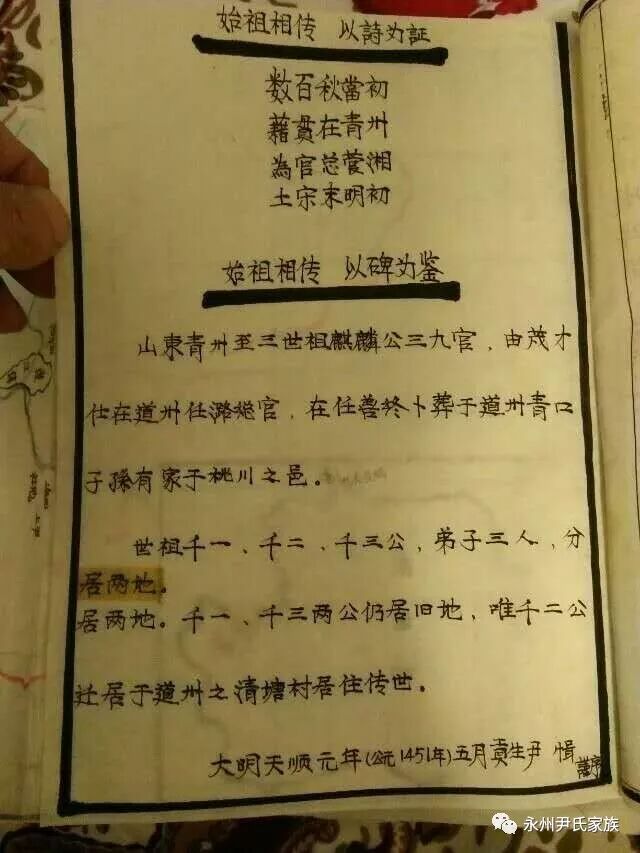 始祖相传 以詩为証
数百秋當初
藉貫在青州
為官总菅湘
土宋末明初
始祖相传 以碑为鉴
山東青州至三世祖麒麟公三九官，由茂才
仕在道州任潞总官，在任善终卜葬于道州青口
子孫有家于桃川之邑。
世祖千一、千二、千三公，弟子三人，分
居两地。
居两地。千一、千三两公仍居旧地，唯千二公
迁居于道州之清塘村居住传世。
大明天顺元年(公元1451年)五月貢生尹 楫 謹序
永州尹氏家族